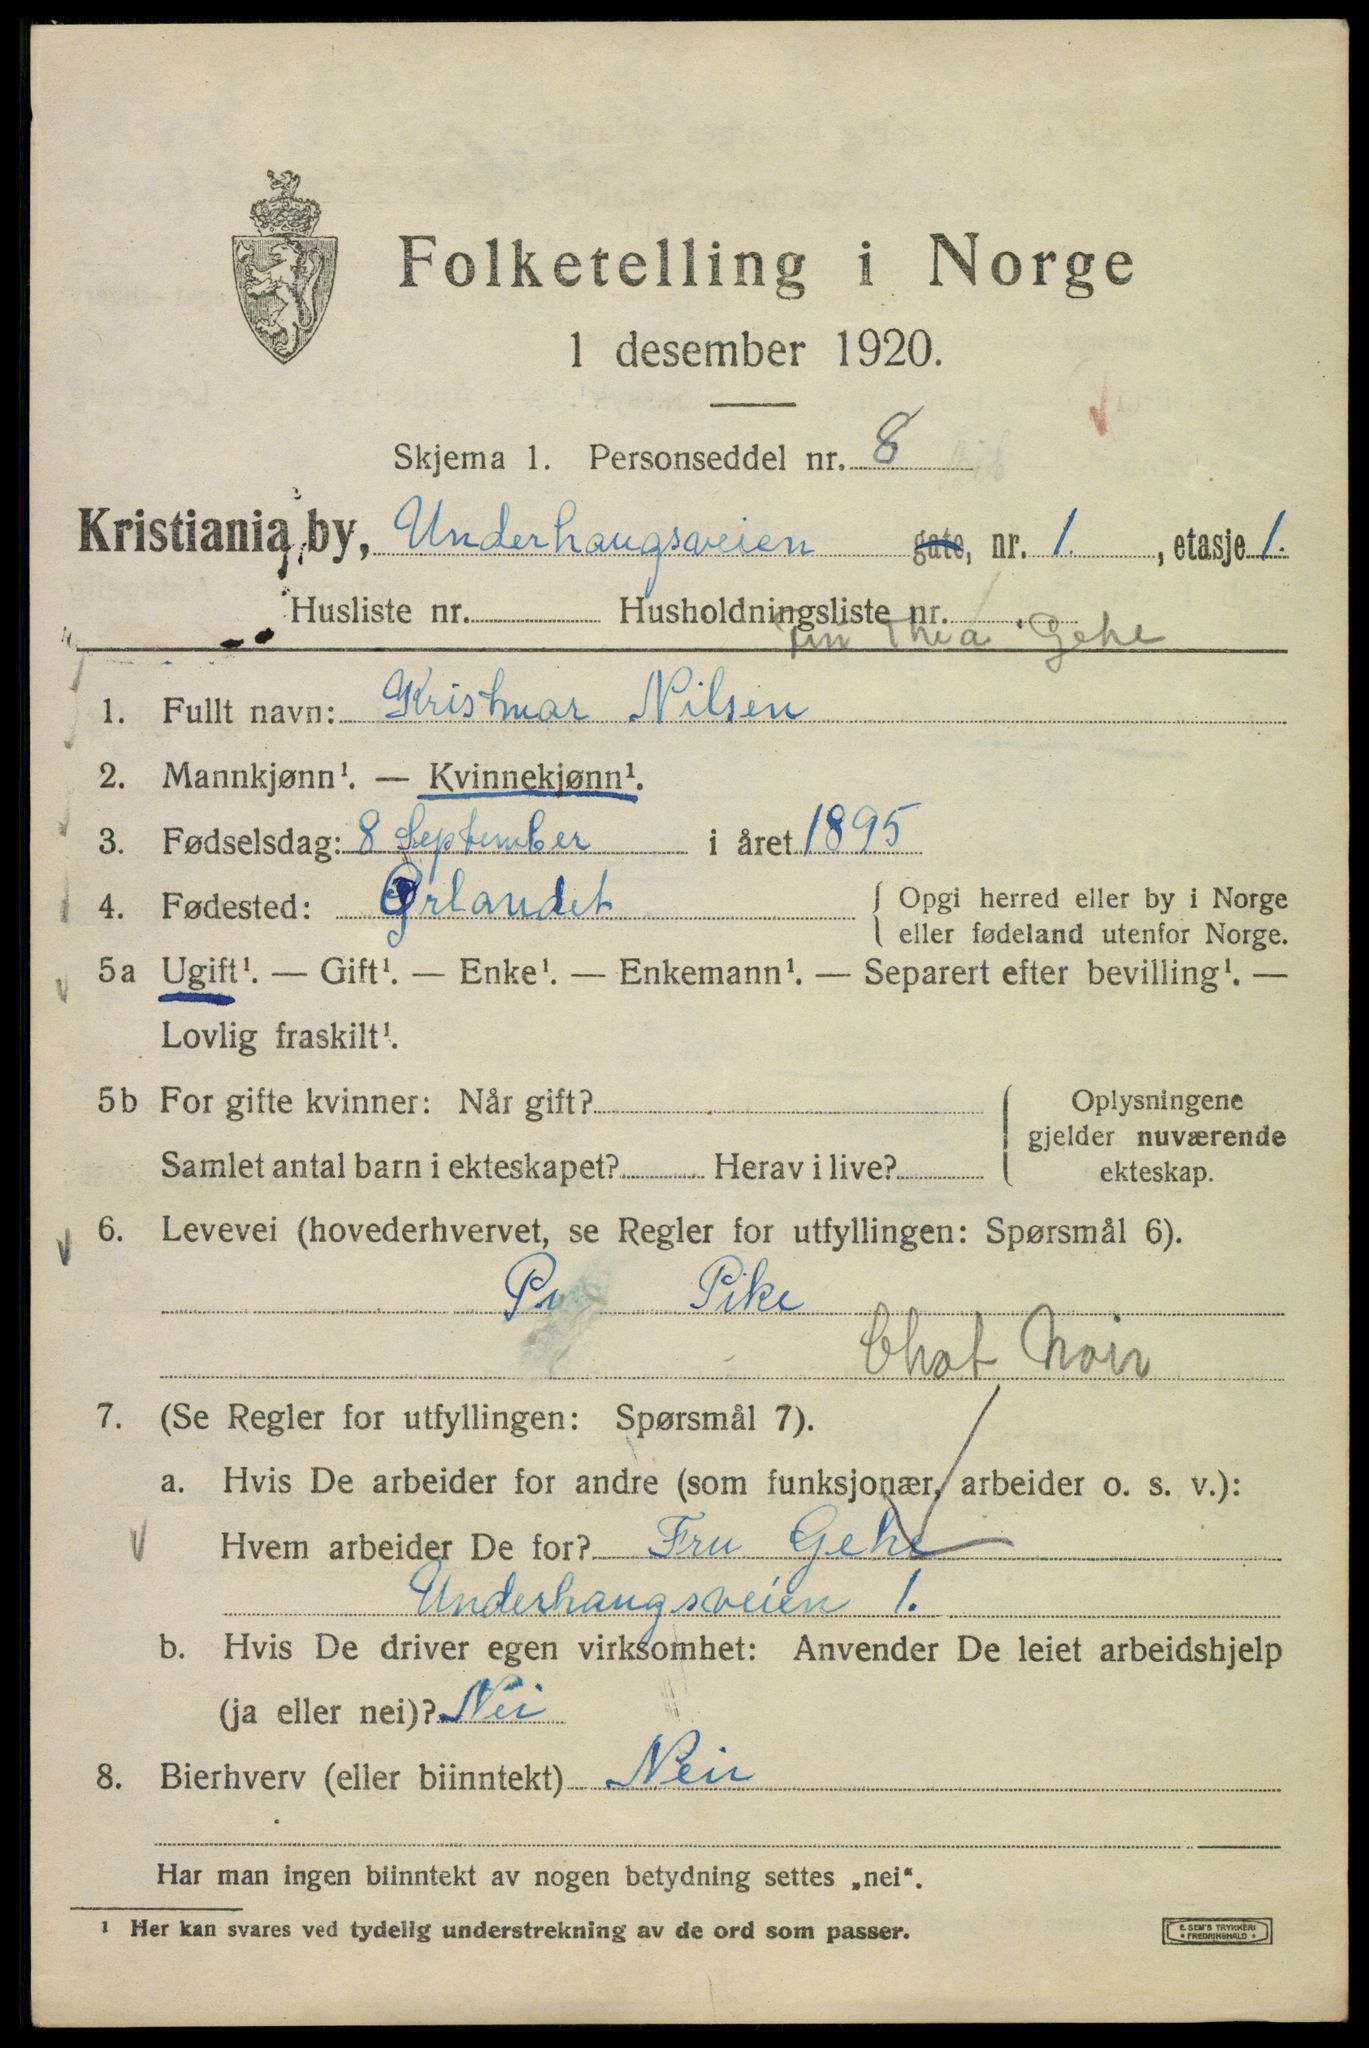 Folketelling i Norge
1 desember 1920.
Skjema 1. Personseddel nr. 8
Kristiania by, Underhaugsveien gate, nr. 1. , etasje 1.
Husliste nr. Husholdningsliste nr.
Thea Gehe
1. Fullt navn: Kristmar Nilsen
2. Mannkjønn¹. — Kvinnekjønn¹.
3. Fødselsdag: 8 September i året 1895
4. Fødested: Ørlandet { Opgi herred eller by i Norge
eller fødeland utenfor Norge.
5a Ugift¹. — Gift¹. — Enke¹. — Enkemann¹. — Separert efter bevilling¹. —
Lovlig fraskilt¹.
5b For gifte kvinner: Når gift? { Oplysningene
gjelder nuværende
Samlet antal barn i ekteskapet? Herav i live? ekteskap.
6. Levevei (hovederhvervet, se Regler for utfyllingen: Spørsmål 6).
Pike
Chat Noir
7. (Se Regler for utfyllingen: Spørsmål 7).
a. Hvis De arbeider for andre (som funksjonær, arbeider o. s. v.):
Hvem arbeider De for? Fru Gehe
Underhaugsveien 1.
b. Hvis De driver egen virksomhet: Anvender De leiet arbeidshjelp
(ja eller nei)? Nei
8. Bierhverv (eller biinntekt) Nei
Har man ingen biinntekt av nogen betydning settes „nei“.
¹ Her kan svares ved tydelig understrekning av de ord som passer.
E. SEM'S TRYKKERI
FREDRIKSHALD